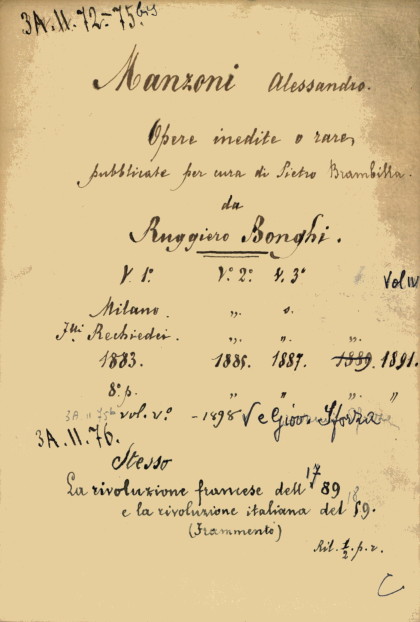 3A.II.72-75.bis
Manzoni Alessandro.
Opere inedite o rare,
pubblicate per cura di Pietro Brambilla.
da
Ruggiero Bonghi.
V. 1º. V.º 2º V. 3º Vol IV
Milano. ,,. s. ,,.
Flli Rechiedei. ,,. ,,. ,,.
1883. 1885. 1887. 1889. 1891.
8.º p. ,, ,, ,,. ,,
3A II 75b vol. V.º - 1898 V e Giov. Sforza
3A.II.76.
Stesso
La rivoluzione francese dell' 1789
e la rivoluzione italiana del 1859.
(Frammento)
Ril. ½. p. r.
C